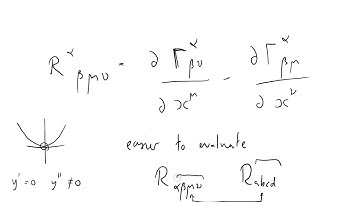 R^α_βμν = ∂Γ^α_βν / ∂x^μ - ∂Γ^α_βμ / ∂x^ν
easier to evaluate
R_αβμν R_abcd
y' = 0 y'' ≠ 0